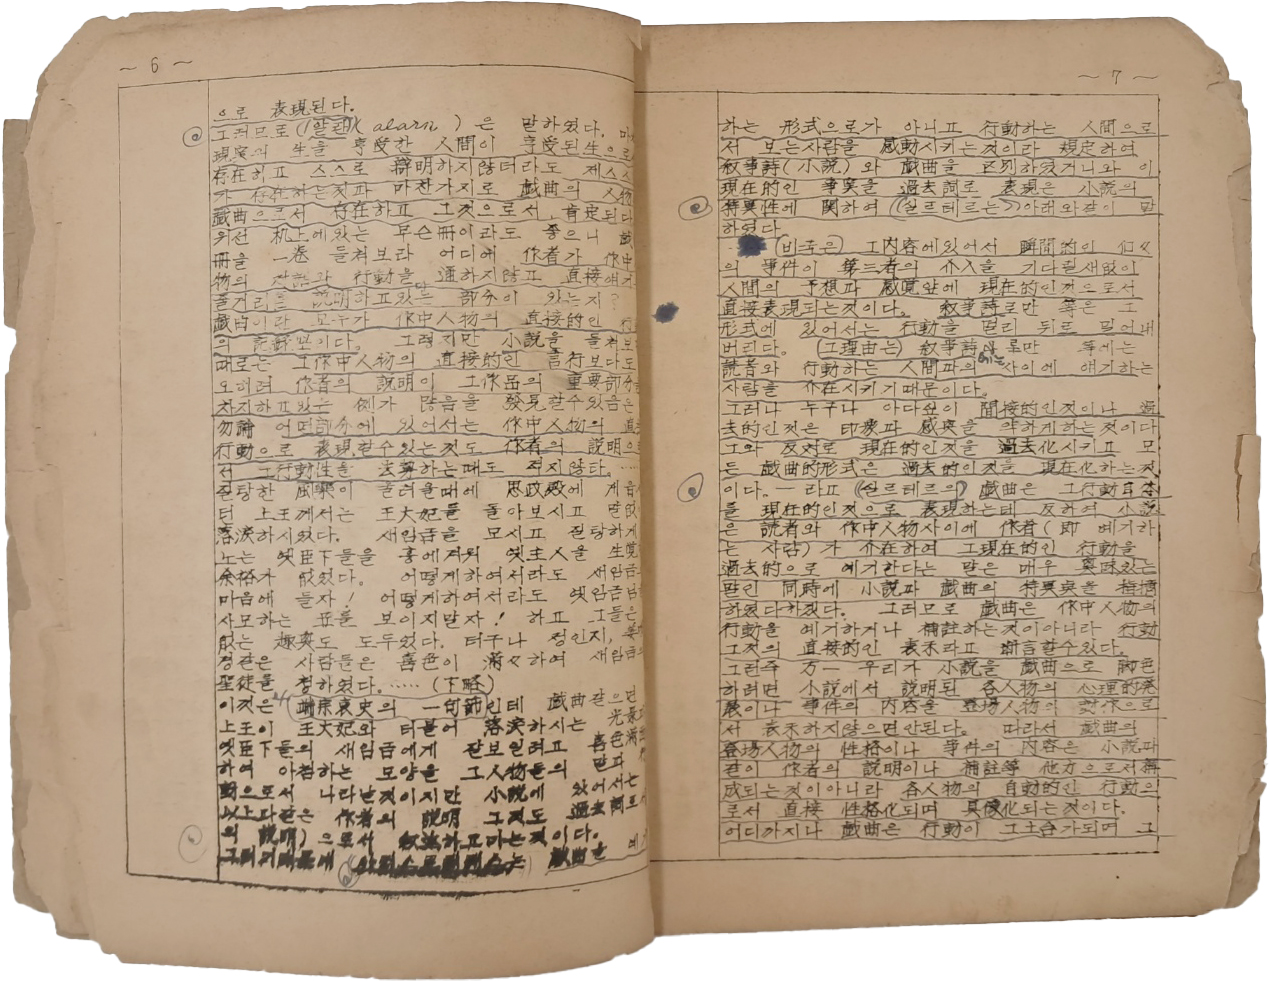 ~ 6 ~
으로 表現된다.
그러므로 (알란)( alarn ) 은 말하였다.
現実의 生을 享受한 人間이 享受된 生으로
存在하고 스스로 辯明하지않더라도 제스
가 存在하는것과 마찬가지로 戱曲의 人物
戱曲으로서 存在하고 그것으로서 肯定된다
위선 机上에있는 무슨册이라도 좋으니
册을 一卷 들쳐보라 어디에 作者가 作中
物의 対話와 行動을 通하지않고 直接
줄거리를 説明하고있는 部分이 있는지?
戱曲이란 모두가 作中人物의 直接的인
의 記録뿐이다. 그렇지만 小說을 들쳐보
때로는 그作中人物의 直接的인 言行보다도
오히려 作者의 説明이 그作品의 重要部分을
차지하고있는 例가 많음을 發見할수있음은
勿論 어떤部分에 있어서는 作中人物의
行動으로 表現할수있는것도 作者의 説明으로
서 그行動性을 는때도 적지않다.
질탕한 風樂이 들려올때에 思政殿에 계
터 上王께서는 王大妃를 돌아보시고 말없
落淚하시었다. 새임금을 모시고 질탕하게
노는 옛臣下들을 흥에겨워 옛主人을 生覚
余裕가 없었다. 어떻게하여서라도 새임금
마음에 들자! 어떻게하여서라도 옛임금
사모하는 표를 보이지말자! 하고 그들은
없는 趣興도 도두었다. 더구나 정인지,
정같은 사람들은 喜色이 滿々하여 새임금의
聖徒을 청하였다. …… (下略)
이것은 端宗哀史의 一句節인데 戱曲같으면
上王이 王大妃와 더불어 落淚하시는 光景
옛臣下들의 새임금에게 잘보일려고 喜色滿
하여 아첨하는 모양을 그人物들의 말과
動으로서 나타난것이지만 小說에 있어서는
以上다같은 作者의 説明 그것도 過去詞로서
의 説明) 으로서 叙述하고마는것이다.
그러기때문에 는 戱曲을
~ 7 ~
하는 形式으로가 아니고 行動하는 人間으로
서 보는사람을 感動시키는것이라 規定하여
叙事詩(小說) 와 戱曲을 区別하였거니와 이
現在的인 事実을 過去詞로 表現은 小說의
特異性에 関하여 (실르테르는) 아래와같이 말
하였다
(비극은) 그内容에있어서 瞬間的인 個々
의 事件이 第三者의 介入을 기다릴새없이
人間의 予想과 感覚앞에 現在的인것으로서
直接表現되는것이다. 叙事詩로만 等은 그
形式에 있어서는 行動을 멀리 뒤로 밀어내
버리다. (그理由는) 叙事詩나 로만 等에는
読者와 行動하는 人間과의 사이에 얘기하는
사람을 介在시키기때문이다。
그러나 누구나 아다싶이 間接的인것이나 過
去的인것은 印象과 感興을 약하게하는것이다
그와 反対로 現在的인것을 過去化시키고 모
든 戱曲的形式은 過去的인것을 現在化하는것
이다. ─ 라고 (실르테르의) 戱曲은 그行動自体
를 現在的인것으로 表現하는데 反하여 小說
은 読者와 作中人物사이에 作者(即 얘기하
는 사람)가 介在하여 그現在的인 行動을
過去的으로 얘기한다는 말은 매우 興味있는
말인 同時에 小說과 戱曲의 特異点을
하였다하겠다. 그러므로 戱曲은 作中人物의
行動을 얘기하거나 補註하는것이아니라 行動
그것의 直接的인 表示라고 断言할수있다.
그런즉 万一 우리가 小說을 戱曲으로 脚色
하려면 小說에서 説明된 各人物의 心理的発
展이나 事件의 内容을 登場人物의 対作으로
서 表示하지않으면안된다. 따라서 戱曲의
登場人物의 性格이나 事件의 内容은 小說과
같이 作者의 説明이나 補註等 他方으로서構
成되는것이아니라 各人物의 自動的인 行動으
로서 直接 性格化되며 具像化되는것이다.
어디까지나 戱曲은 行動이 그土台가되며 그